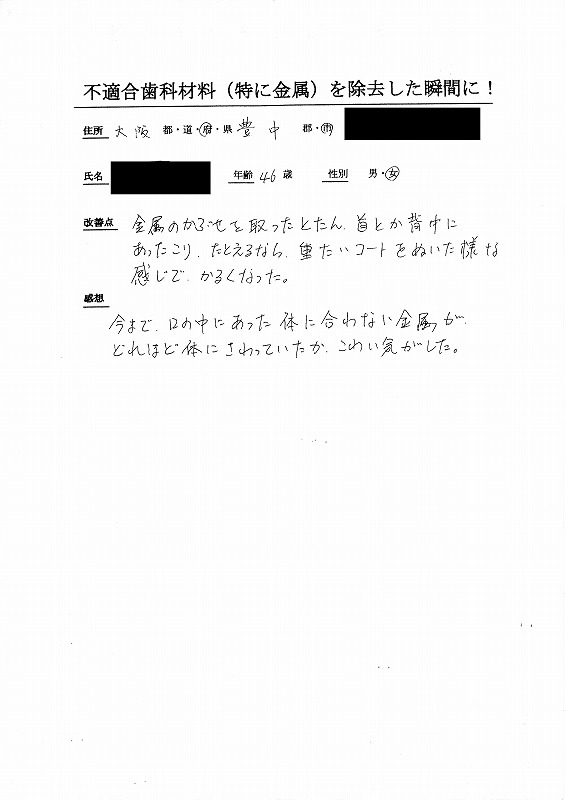 不適合歯科材料（特に金属）を除去した瞬間に！
住所 大阪 都・道・府・県 豊中 郡・市
氏名 年齢 46 歳 性別 男・女
改善点 金属のかぶせを取ったとたん、首とか背中に
あったこり、たとえるなら、重たいコートをぬいた様な
感じで、かるくなった。
感想
今まで、口の中にあった体に合わない金属が、
どれほど体にさわっていたか、こわい気がした。